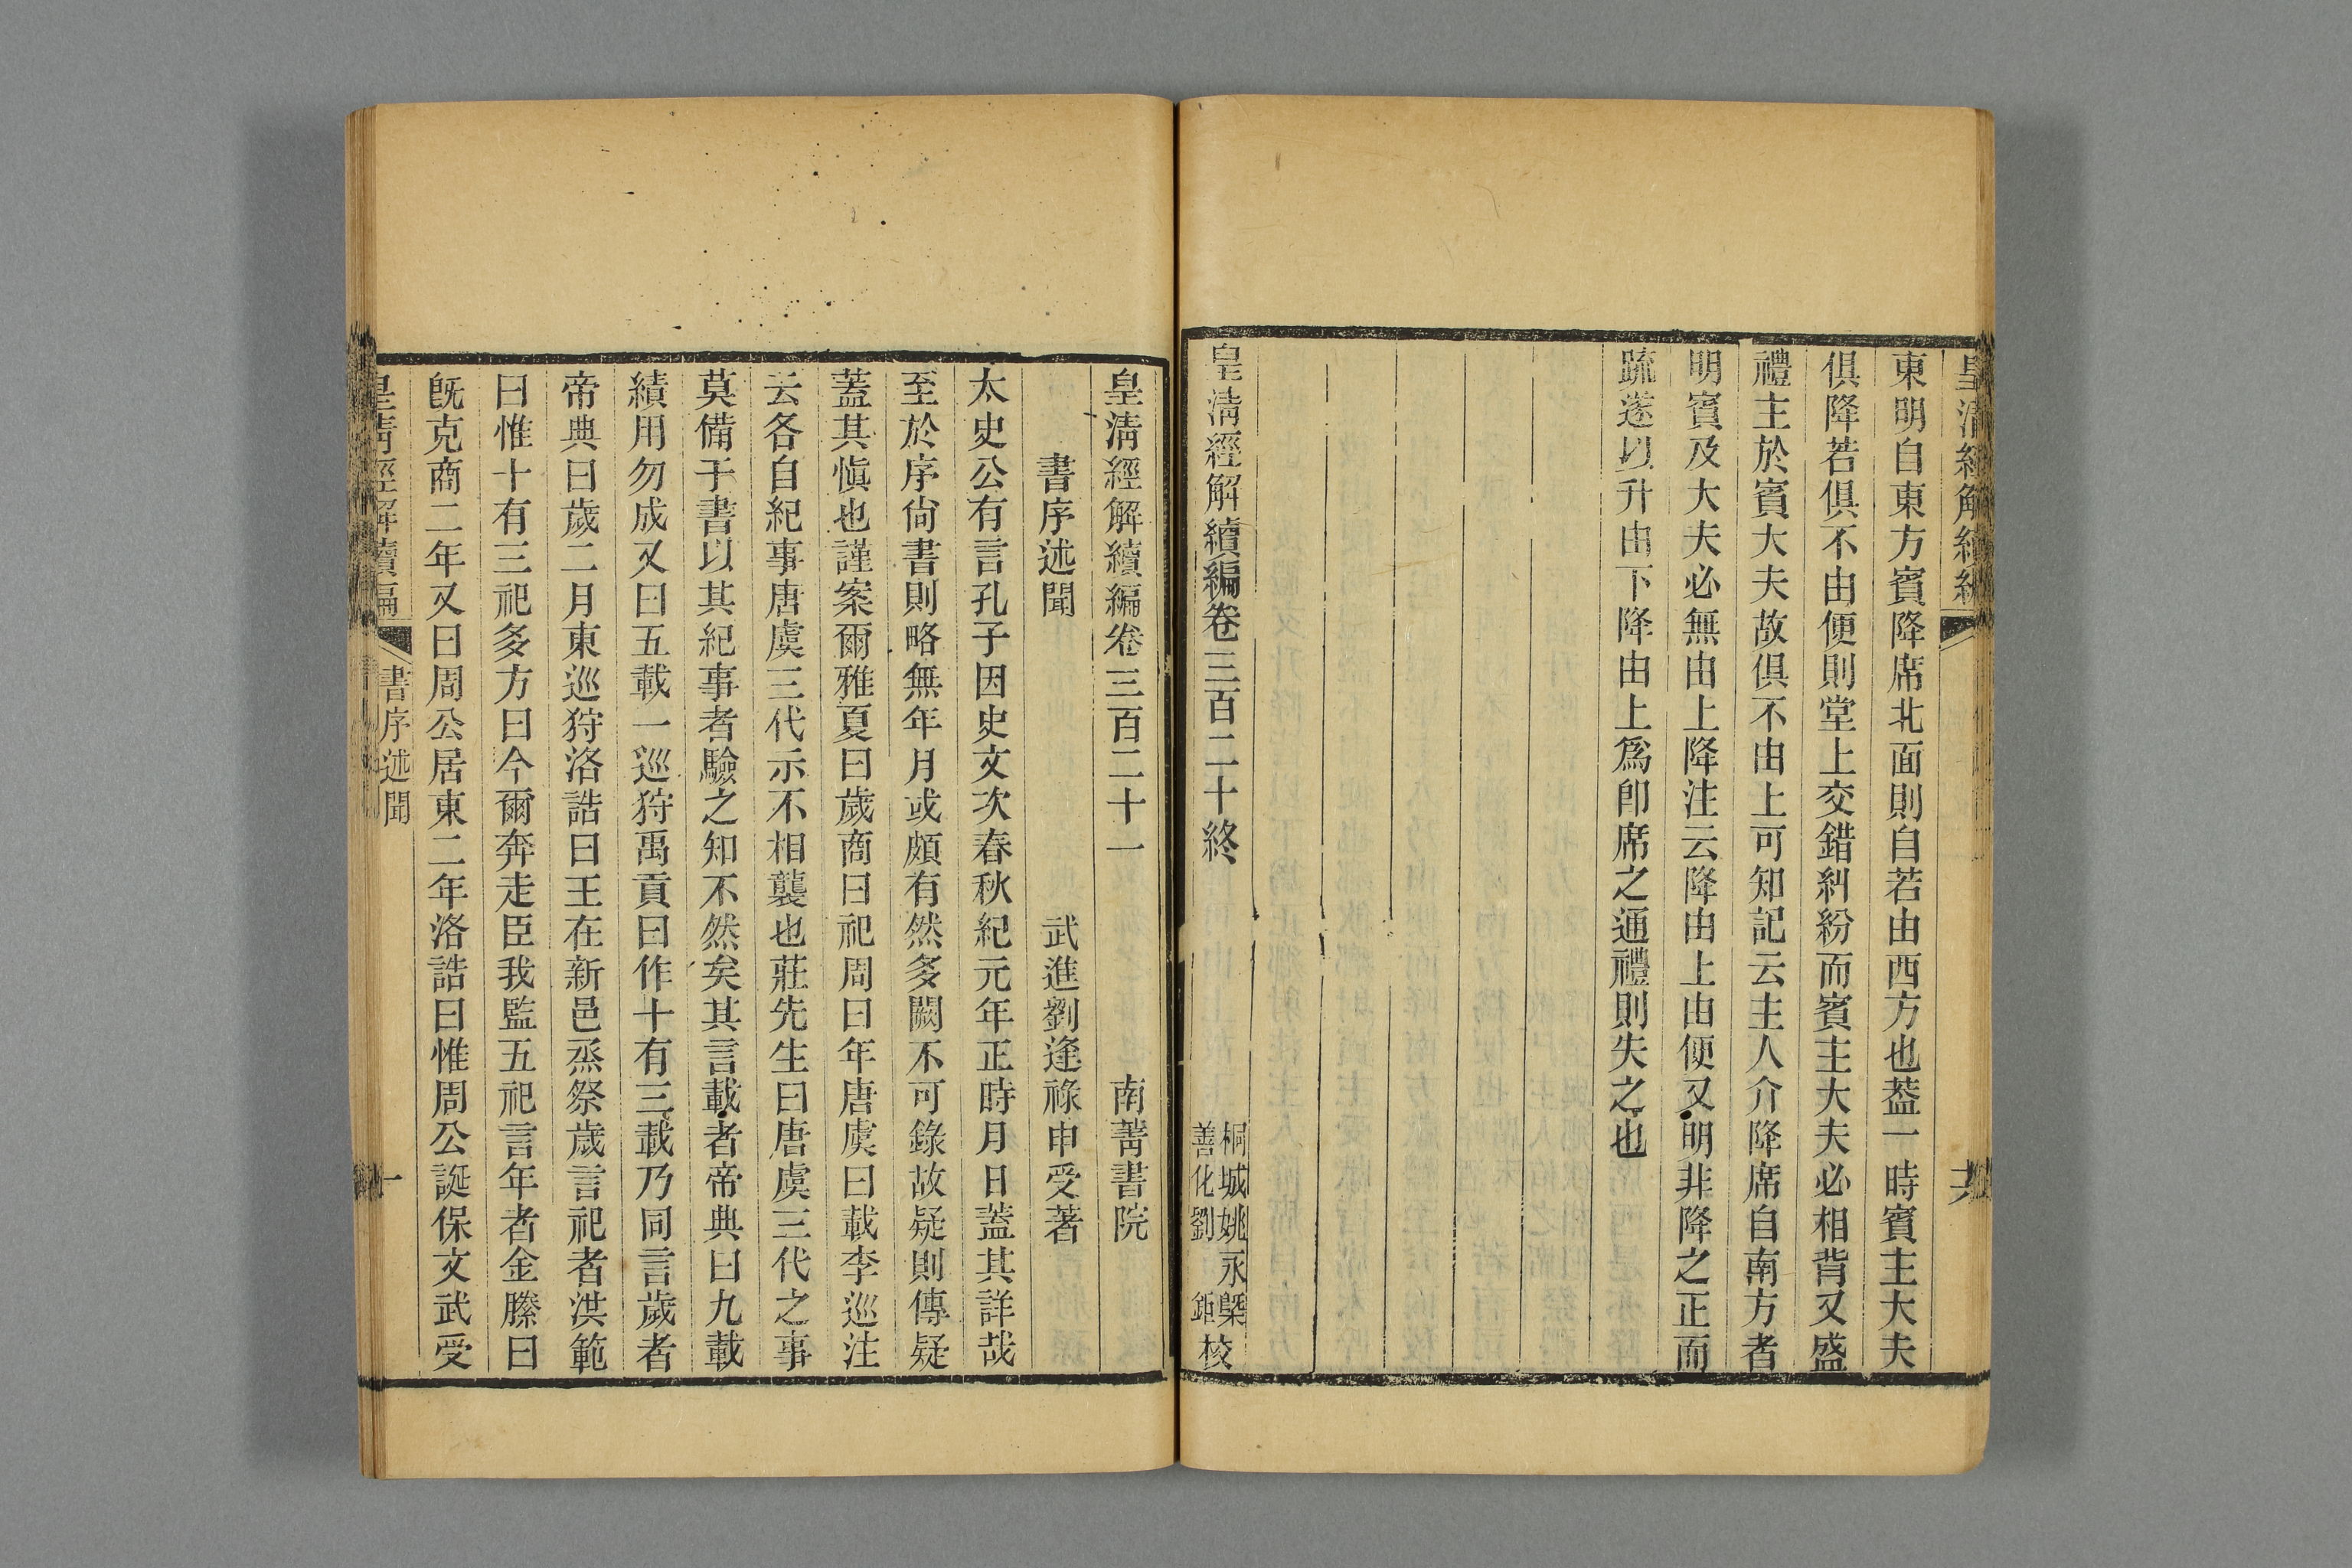 皇清經解續編
六
東明自東方賓降席北面則自若由西方也葢一時賓主大夫
俱降若俱不由便則堂上交錯糾紛而賓主大夫必相背又盛
禮主於賓大夫故俱不由上可知記云主人介降席自南方者
明賓及大夫必無由上降注云降由上由便又明非降之正而
疏遂以升由下降由上爲卽席之通禮則失之也
皇淸經解續編卷三百二十終
桐城姚永㮣
善化劉 鉅
校
皇淸經解續編卷三百二十一
南菁書院
書序述聞
武進劉逢祿申受著
太史公有言孔子因史文次春秋紀元年正時月日蓋其詳哉
至於序尙書則略無年月或頗有然多闕不可錄故疑則傳疑
蓋其愼也謹案爾雅夏曰歲商曰祀周曰年唐虞曰載李巡注
云各自紀事唐虞三代示不相襲也莊先生曰唐虞三代之事
莫備于書以其紀事者驗之知不然矣其言載者帝典曰九載
績用勿成又曰五載一巡狩禹貢曰作十有三載乃同言歲者
帝典曰歲二月東巡狩洛誥曰王在新邑烝祭歲言祀者洪範
曰惟十有三祀多方曰今爾奔走臣我監五祀言年者金縢曰
旣克商二年又曰周公居東二年洛誥曰惟周公誕保文武受
皇淸經解續編
書序述聞
一